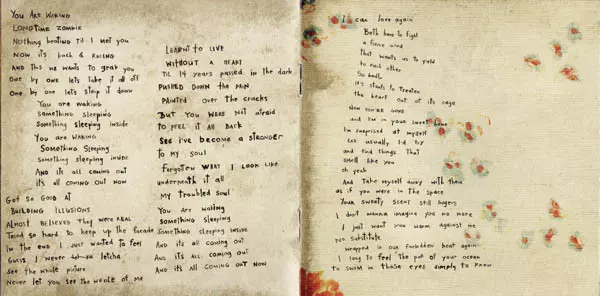 You Are Waking
LONGTIME ZOMBIE
Nothing beating til I met you
Now it's back & RACING
And this he wants to grab you
One by one lets take it all off
One by one lets strip it down
You are waking
Something sleeping
Something sleeping inside
You are WAKING
Something Sleeping
Something sleeping inside
And its all coming out
its all coming out now
Got so Good at
BUILDING ILLUSIONS
ALMOST BELIEVED THEY WERE REAL
Tried so hard to keep up the facade
In the end I just wanted to feel
Guess I never letcha
See the whole picture
Never let you see the whole of me
LEARNT TO LIVE
WITHOUT A HEART
Til 14 years passed in the dark
PUSHED DOWN THE PAIN
PAINTED over the cracks
BUT YOU WERE NOT afraid
to peel it all BACK
SEE I've become a stronger
to MY SOUL
Forgotten WHAT I LOOK LIKE
underneath it all
My troubled SOUL
You are waking
Something sleeping
Something sleeping inside
And its all coming out
And its all coming out
And its all coming out now
I can love again
Both here to fight
a fierce wind
that wants us to yield
to each other
So badly
its starts to threaten
the heart out of its cage
Now you're gone
and I'm in your sweet
I'm surprised at myself
usually I'd try
and find things that
smell like you
oh yeah
And Take myself away with them
as if you were in the space
Your sweaty scent still lingers
I don't wanna imagine you no more
I just want you warm against me
No Substitute
wrapped in our forbidden heat again
I long to feel the pull of your ocean
to swim in those eyes simply to know